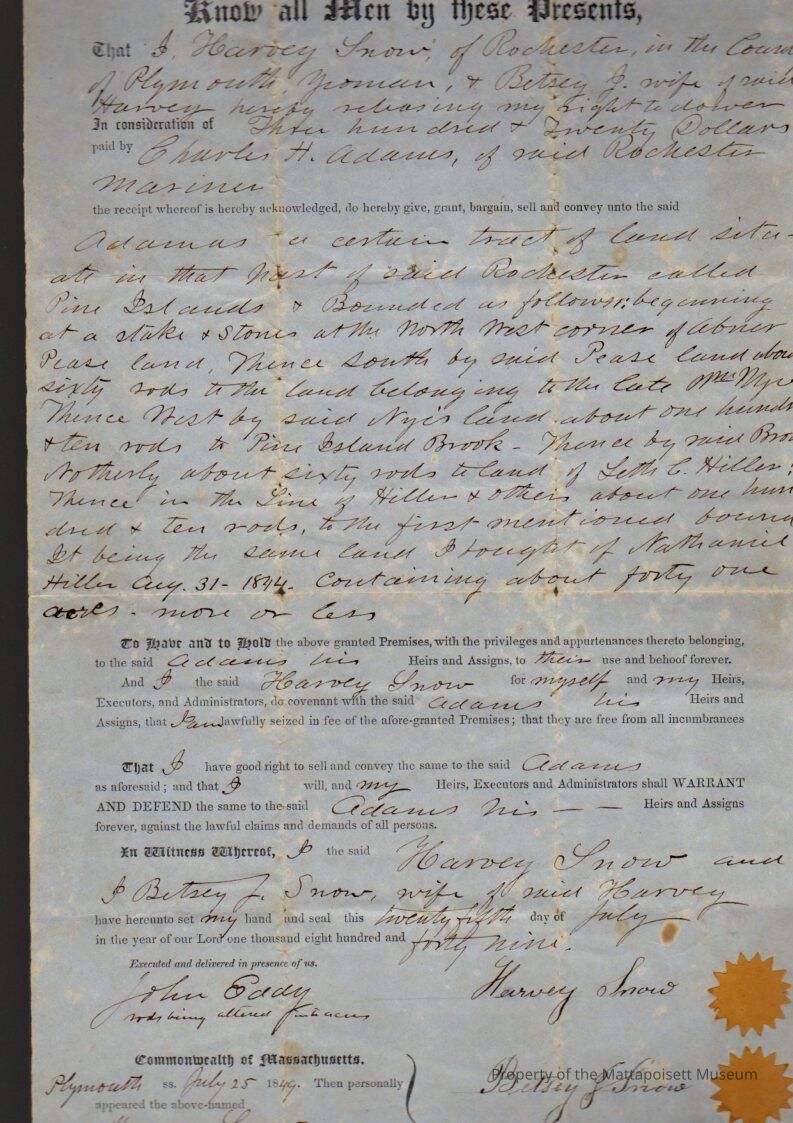 Know all Men by these Presents,
That I, Harvey Snow, of Rochester, in the Coun
of Plymouth, Yeoman, & Betsey J. wife of said
Harvey hereby releasing my right to dower
In consideration of Three hundred & Twenty Dollars
paid by Charles H. Adams, of said Rochester
Mariner
the receipt whereof is hereby acknowledged, do hereby give, grant, bargain, sell and convey unto the said
Adams a certain tract of land situ-
ate in that part of said Rochester called
Pine Islands & Bounded as follows: beginning
at a stake & Stones at the North West corner of Abner
Pease land, Thence South by said Pease land abou
sixty rods to the land belonging to the late Wm Nye
Thence West by said Nye's land about one hundr
& ten rods to Pine Island Brook - Thence by said Broo
Notherly about sixty rods to land of Seth C. Hiller;
Thence in the Line of Hiller & others about one hun
dred & ten rods, to the first mentioned bound
It being the same land I bought of Nathaniel
Hiller Aug. 31 - 1844. Containing about forty one
acres - more or less
To Have and to Hold the above granted Premises, with the privileges and appurtenances thereto belonging,
to the said Adams his Heirs and Assigns, to their use and behoof forever.
And I the said Harvey Snow for myself and my Heirs,
Executors, and Administrators, do covenant with the said Adams his Heirs and
Assigns, that I am lawfully seized in fee of the afore-granted Premises; that they are free from all incumbrances
That I have good right to sell and convey the same to the said Adams
as aforesaid; and that I will, and my Heirs, Executors and Administrators shall WARRANT
AND DEFEND the same to the said Adams his — — Heirs and Assigns
forever, against the lawful claims and demands of all persons.
In Witness Whereof, I the said Harvey Snow and
I Betsey J. Snow, wife of said Harvey
have hereunto set my hand and seal this twenty fifth day of July
in the year of our Lord one thousand eight hundred and forty nine.
Executed and delivered in presence of us.
John Eddy
rods being altered
Harvey Snow
Commonwealth of Massachusetts.
Plymouth ss. July 25 1849. Then personally
appeared the above-named
Betsey J Snow
Property of the Mattapoisett Museum